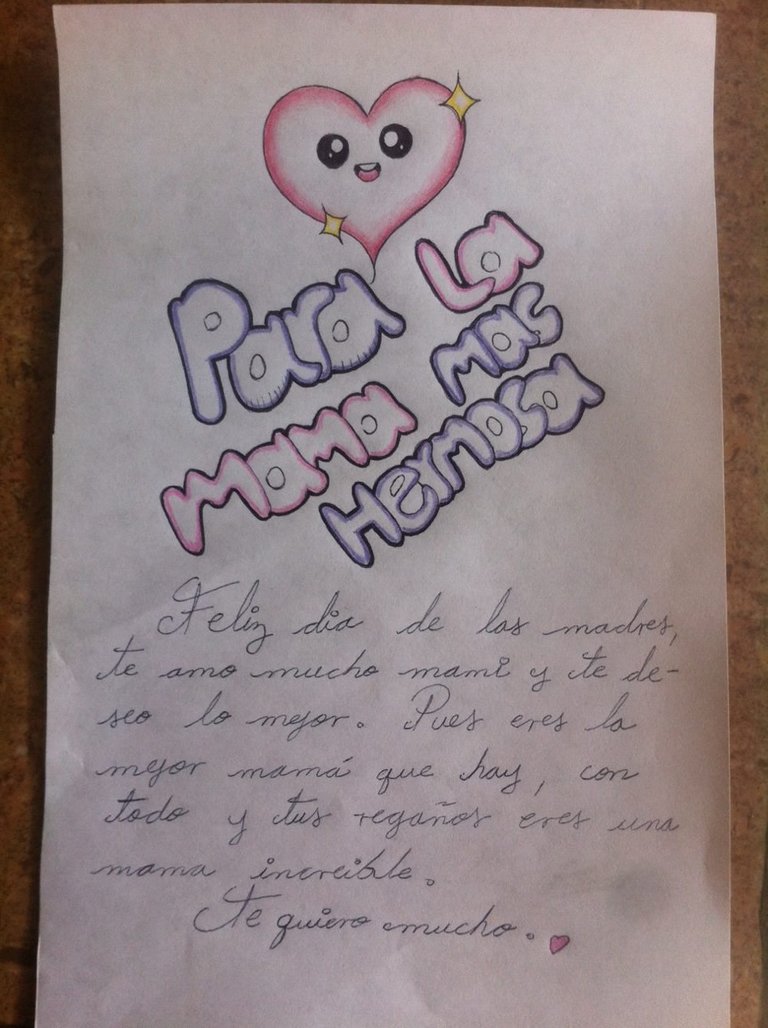 Para La
mama mas
Hermosa
Feliz dia de las madres,
te amo mucho mami y te de-
seo lo mejor. Pues eres la
mejor mamá que hay, con
todo y tus regaños eres una
mama increible.
Te quiero mucho.